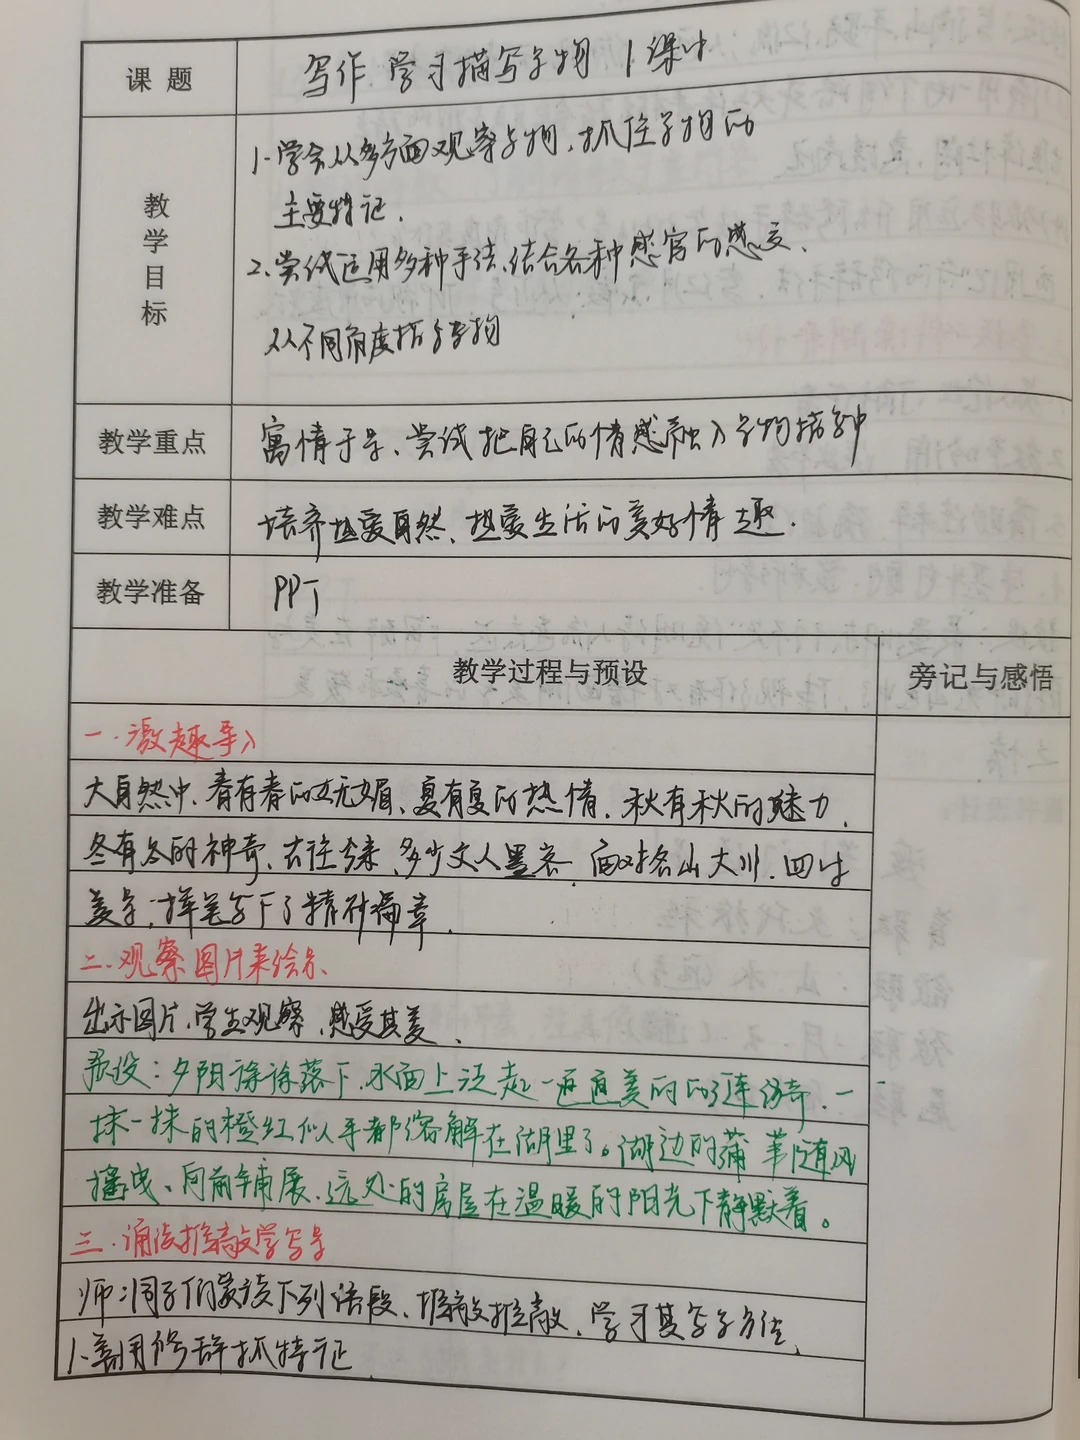 课题 写作 学习描写景物 1课时
教学目标
1.学会从多方面观察景物、抓住景物的
主要特征.
2.尝试运用多种手法、结合各种感官的感受、
从不同角度描写景物
教学重点 寓情于景、尝试把自己的情感融入景物描写中
教学难点 培养热爱自然、热爱生活的美好情趣.
教学准备 PPT
教学过程与预设 旁记与感悟
一.激趣导入
大自然中、春有春的妩媚、夏有夏的热情、秋有秋的魅力、
冬有冬的神奇、古往今来、多少文人墨客、面对名山大川、四时
美景、挥笔写下了精妙篇章.
二.观察图片来绘景
出示图片,学生观察,感受其美、
预设:夕阳徐徐落下,水面上泛起一道道美丽的涟漪、一
抹一抹的橙红似乎都溶解在湖里了。湖边的蒲苇随风
摇曳、向前铺展、远处的房屋在温暖的阳光下静默着。
三.诵读推敲学写景
师:同学们家读下列语段、推敲推敲、学习其写景方法、
1.善用修辞抓特征